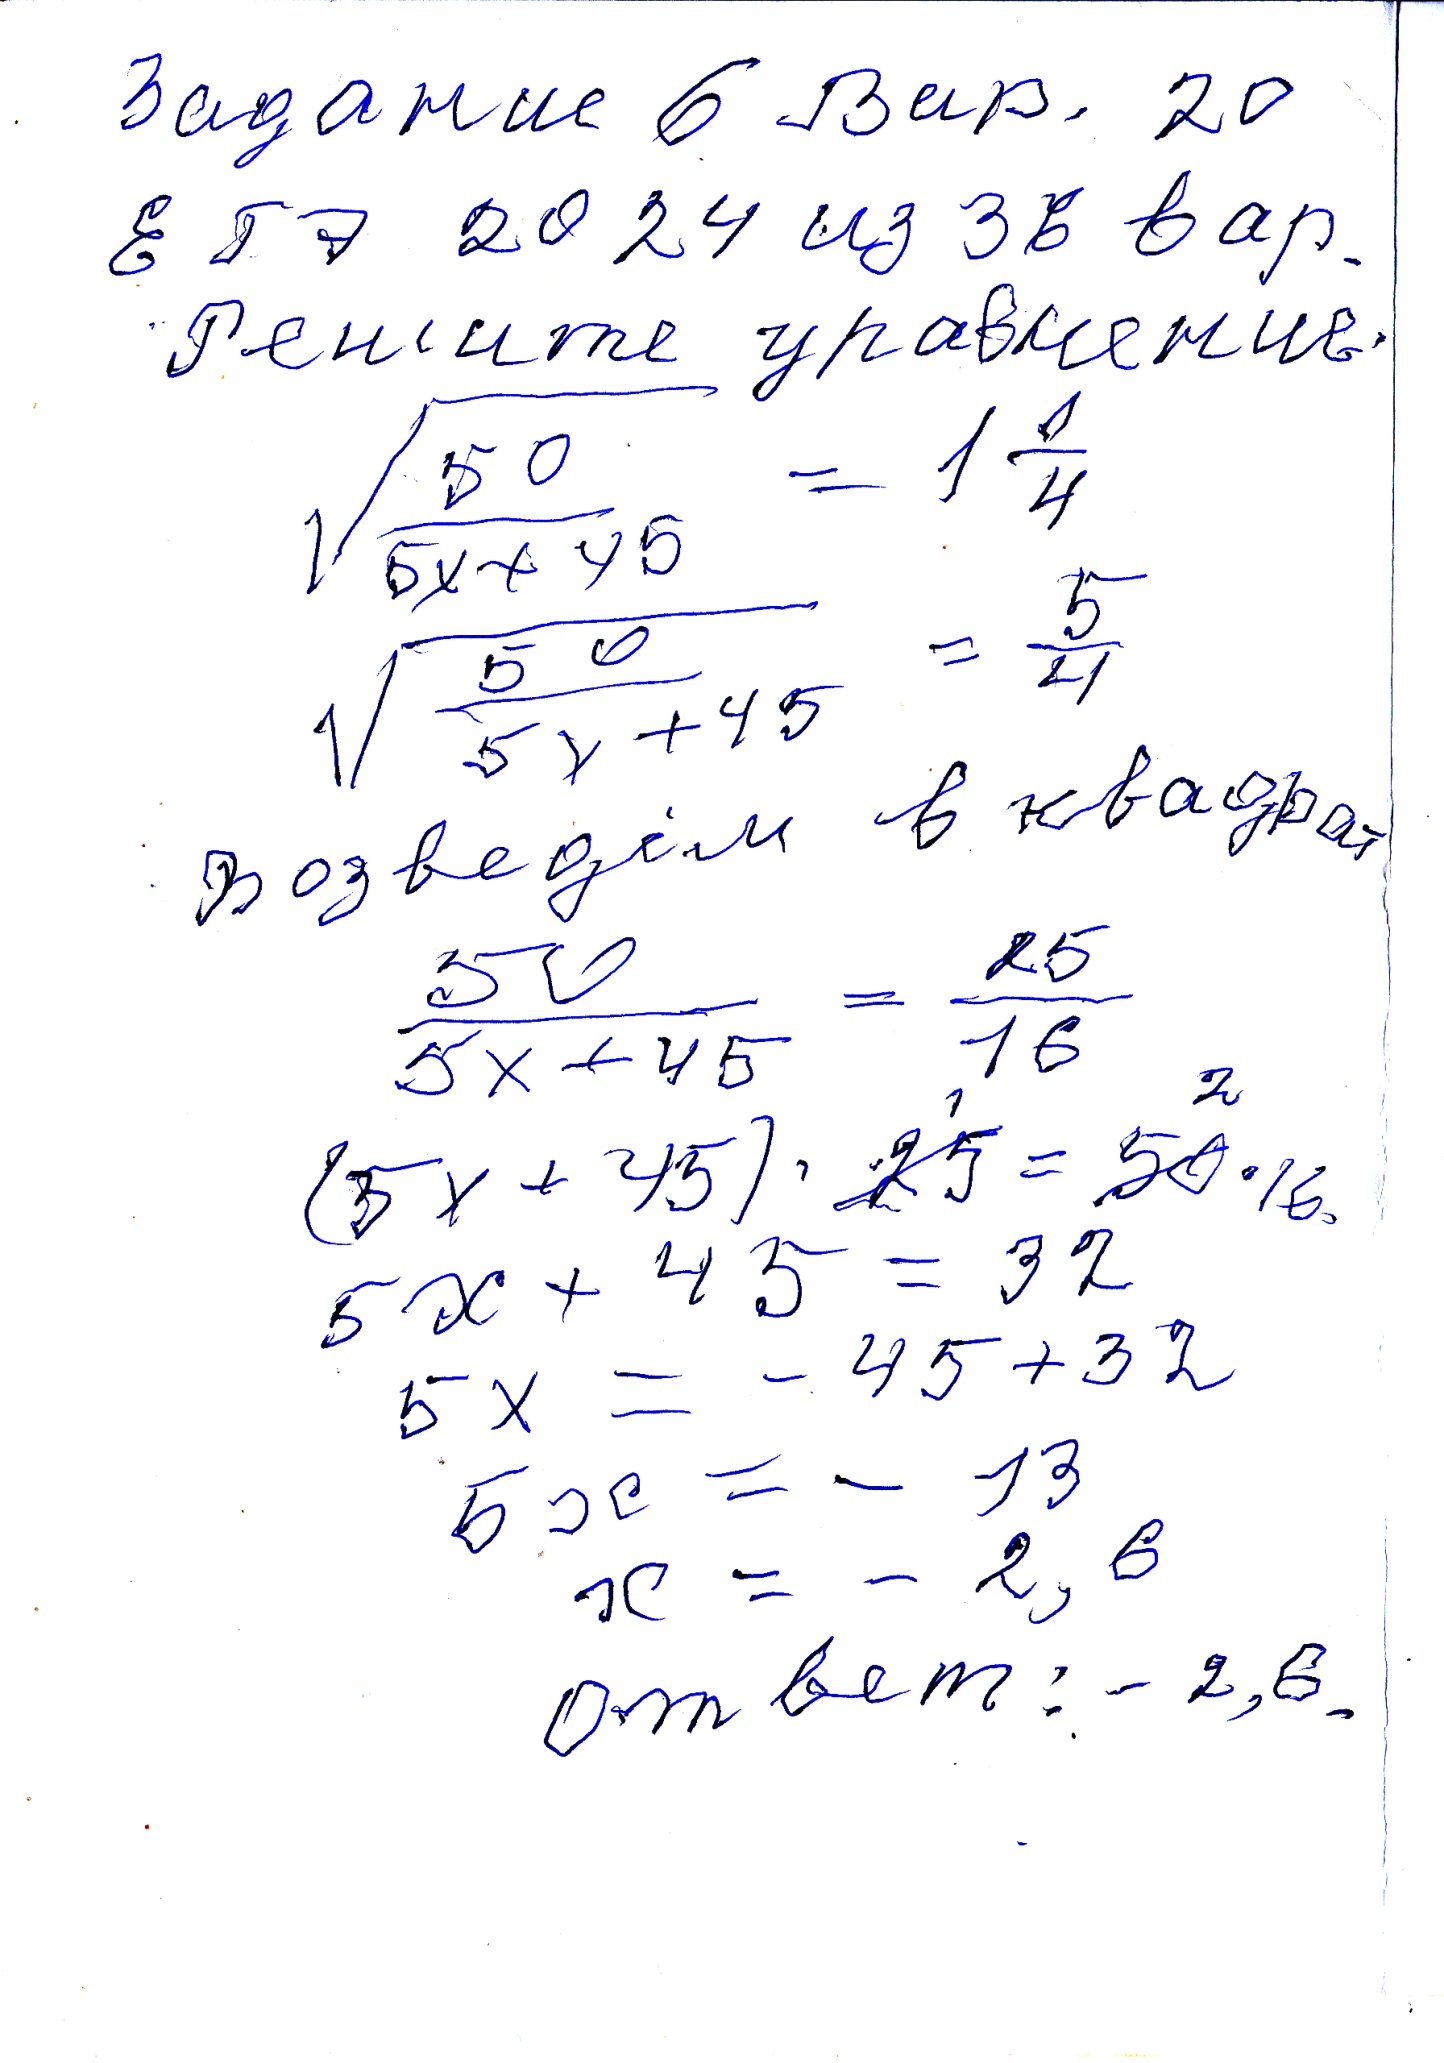 Задание 6 Вар. 20
ЕГЭ 2024 из 36 вар.
Решите уравнение.
√(50/(5x+45)) = 1 1/4
√(50/(5x+45)) = 5/4
Возведём в квадрат
50/(5x+45) = 25/16
(5x+45)·25 1 = 50 2·16.
5x+45=32
5x=-45+32
5x=-13
x=-2,6
Ответ:-2,6.